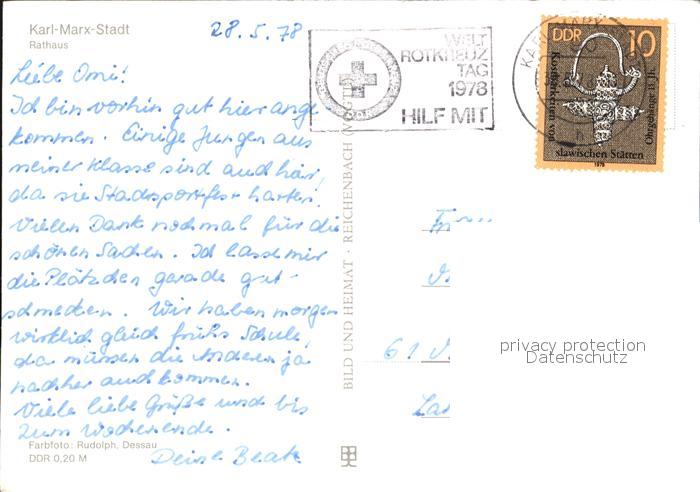 Karl-Marx-Stadt
Rathaus
28.5.78
Liebe Omi!
Ich bin vorhin gut hier ange
kommen. Einige Jungen aus
meiner Klasse sind auch hier,
da sie Stadtsportfest hatten.
Vielen Dank nochmal für die
schönen Sachen. Ich lasse mir
die Plätzchen gerade gut-
schmecken. Wir haben morgen
wirklich gleich frühs Schule,
da müssen die Anderen ja
nachher auch kommen.
Viele liebe Grüße und bis
zum Wochenende.
Deine Beate
Farbfoto: Rudolph, Dessau
DDR 0,20 M
BILD UND HEIMAT · REICHENBACH
WELT
ROTKREUZ
TAG
1978
HILF MIT
DDR 10
Kostbarkeiten von
slawischen Stätten
Ohrgehänge 11. Jh.
1978
61
privacy protection
Datenschutz